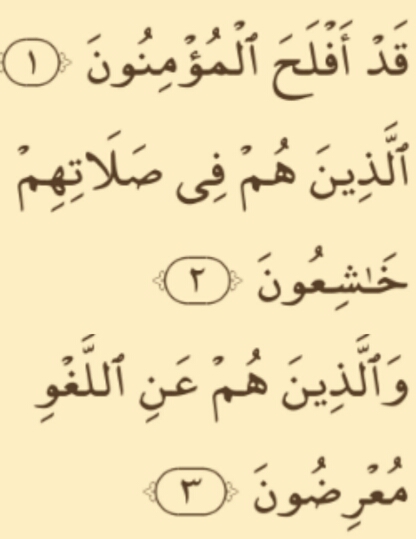 قَدْ أَفْلَحَ ٱلْمُؤْمِنُونَ ١
ٱلَّذِينَ هُمْ فِى صَلَاتِهِمْ
خَـٰشِعُونَ ٢
وَٱلَّذِينَ هُمْ عَنِ ٱللَّغْوِ
مُعْرِضُونَ ٣